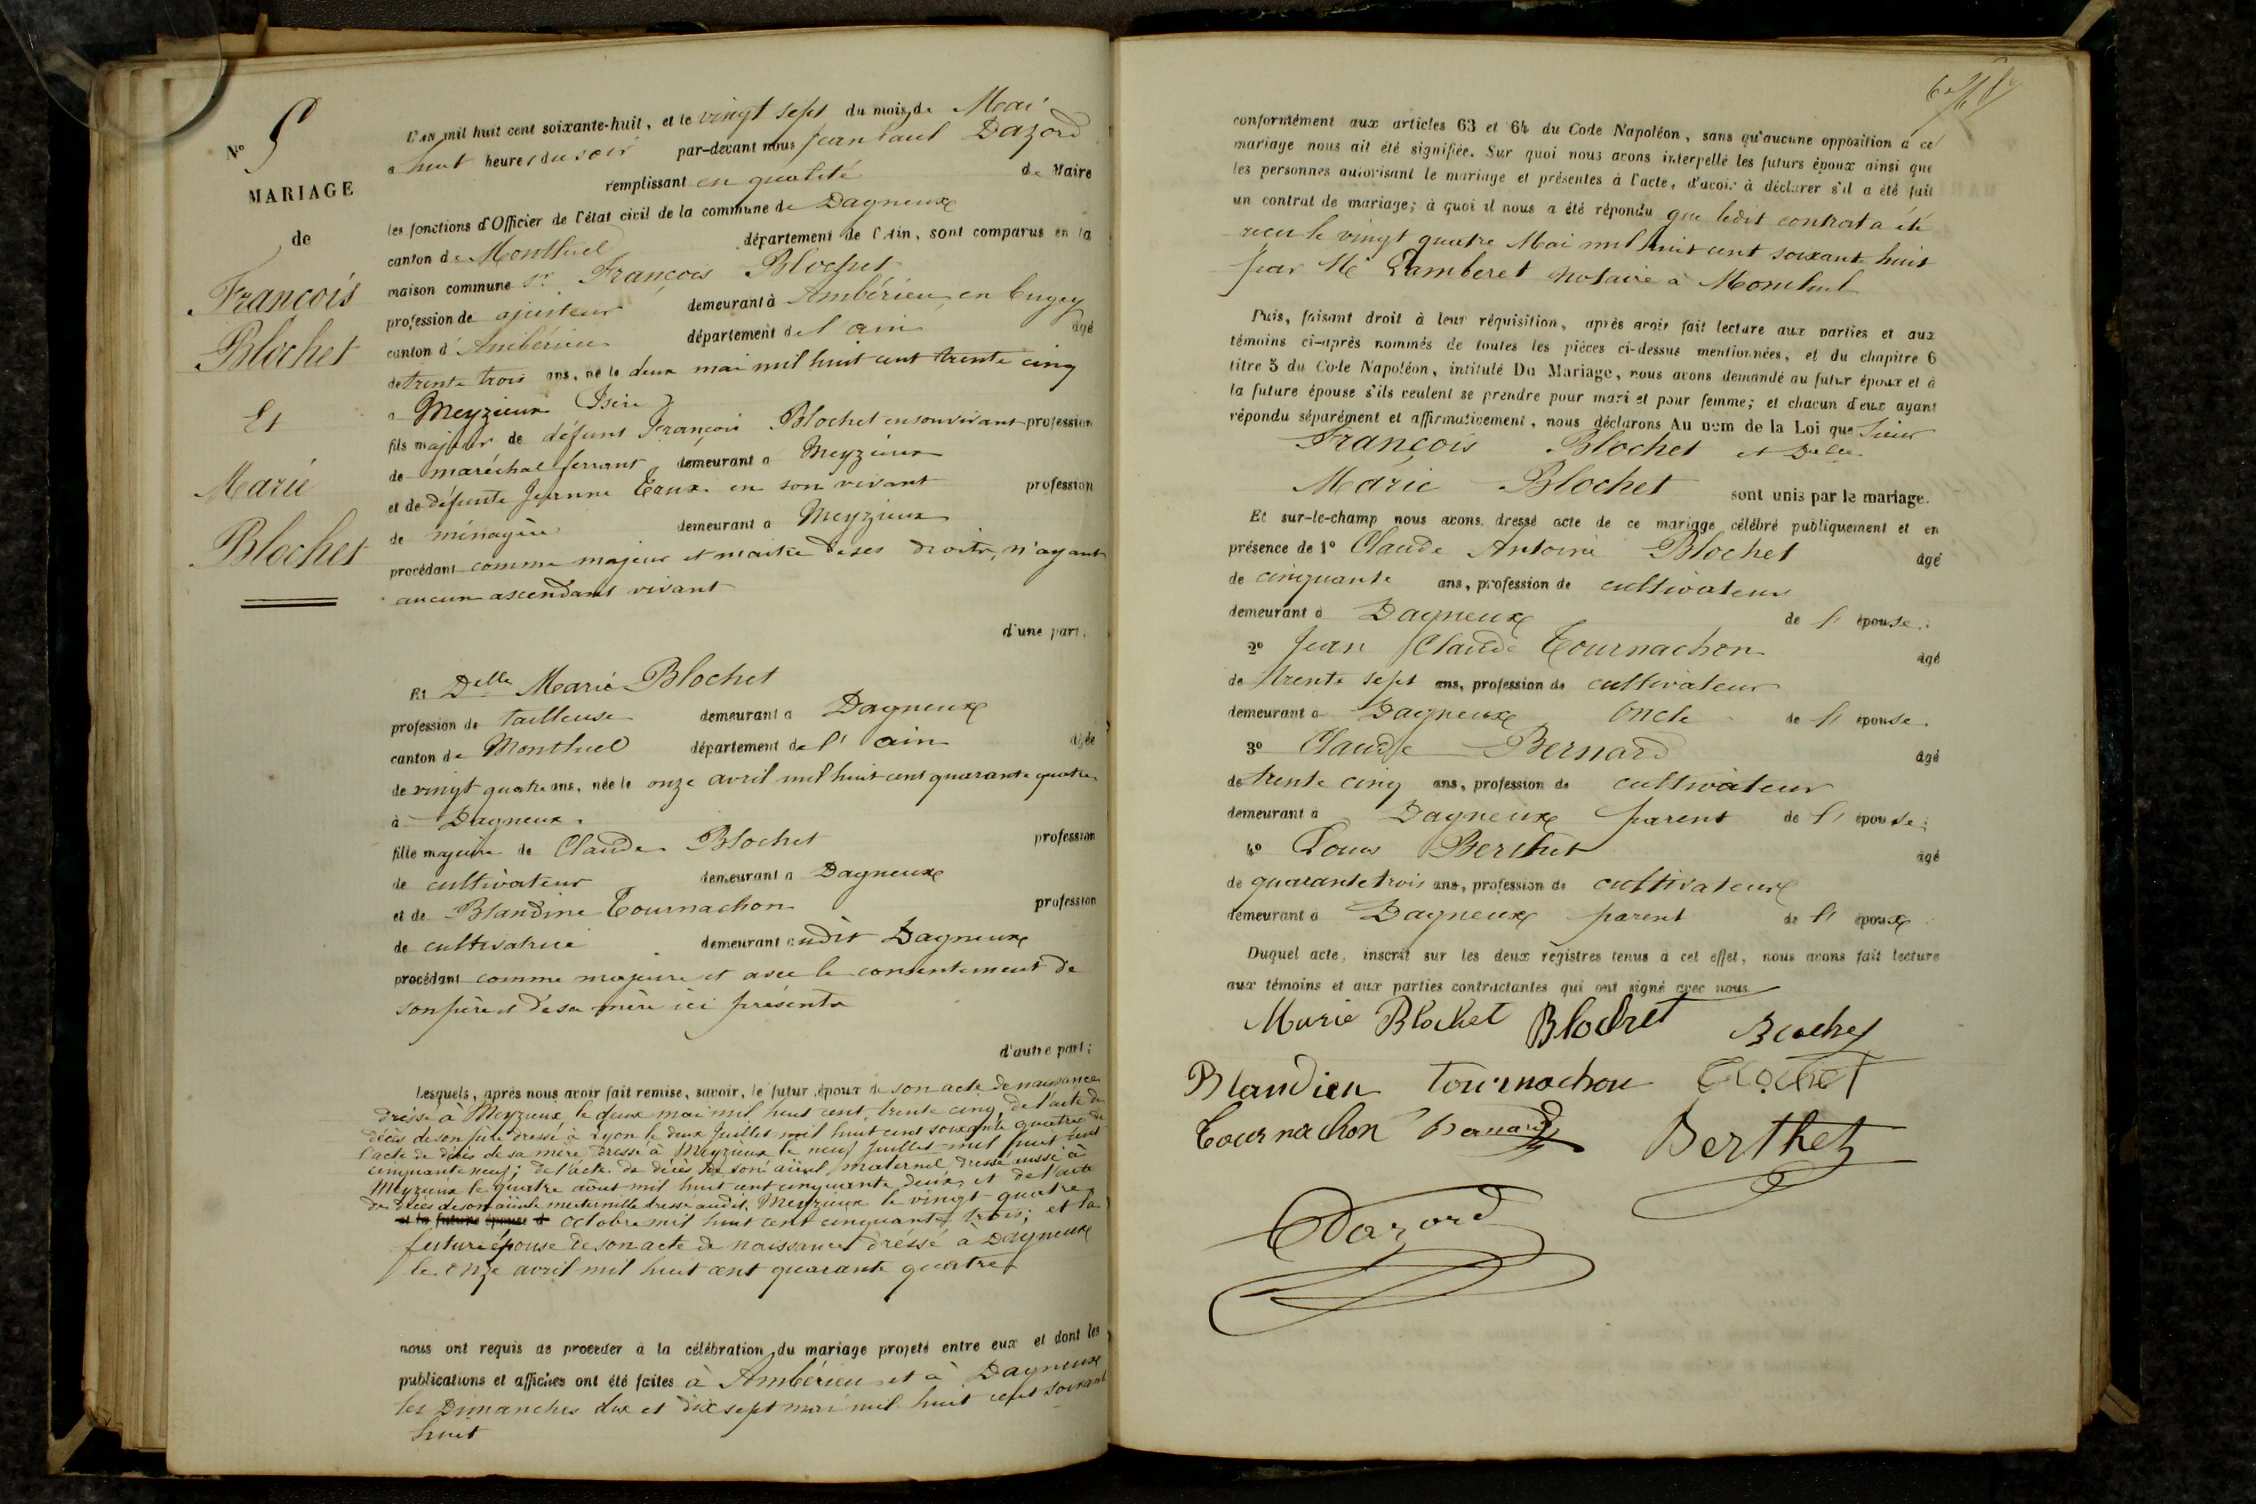 N° 5
MARIAGE
de
François
Blochet
Et
Marie
Blochet
L'AN mil huit cent soixante-huit, et le vingt sept du mois de Mai
a huit heures du soir par-devant nous Jean Paul Dazord
remplissant en qualité de Maire
les fonctions d'Officier de l'état civil de la commune de Dagneux
canton de Montluel département de l'Ain, sont comparus en la
maison commune Sr François Blochet
profession de ajusteur demeurant à Ambérieu en Bugey
canton d'Ambérieu département de l'ain âgé
de trente trois ans, né le deux mai mil huit cent trente cinq
a Meyzieux (Isère)
fils majeur de défunt François Blochet en son vivant profession
de maréchal ferrant demeurant a Meyzieux
et de défunte Jeanne en son vivant profession
de ménagère demeurant a Meyzieux
procédant comme majeur et maitre de ses droits, n'ayant
aucun ascendant vivant
d'une part.
Et Delle Marie Blochet
profession de tailleuse demeurant a Dagneux
canton de Montluel département de l'ain âgée
de vingt quatre ans, née le onze avril mil huit cent quarante quatre
à Dagneux.
fille majeure de Claude Blochet profession
de cultivateur demeurant a Dagneux
et de Blandine Tournachon profession
de cultivatrice demeurant audit Dagneux
procédant comme majeure et avec le consentement de
son père et de sa mère ici présents
d'autre part;
Lesquels, après nous avoir fait remise, savoir, le futur époux de son acte de naissance
dréssé à Meyzieux le deux mai mil huit cent trente cinq, de l'acte de
décès de son père dressé à Lyon le deux Juillet mil huit cent soixante quatre de
l'acte de décès de sa mère dressé à Meyzieux le neuf Juillet mil huit cent
cinquante neuf; de l'acte de décès de son aïeul maternel dressé aussi à
Meyzieux le quatre août mil huit cent cinquante deux, et de l'acte
de décès de son aïeule maternelle dressé audit Meyzieux le vingt-quatre
et la future épouse d octobre mil huit cent cinquante trois; et la
future épouse de son acte de naissance dréssé à Dagneux
le onze avril mil huit cent quarante quatre
nous ont requis de procéder à la célébration du mariage projeté entre eux et dont les
publications et affiches ont été faites à Ambérieu et à Dagneux
les Dimanches dix et dix sept mai mil huit cent soixante
huit
conformément aux articles 63 et 64 du Code Napoléon, sans qu'aucune opposition à ce
mariage nous ait été signifiée. Sur quoi nous avons interpellé les futurs époux ainsi que
les personnes autorisant le mariage et présentes à l'acte, d'avoir à déclarer s'il a été fait
un contrat de mariage; à quoi il nous a été répondu que ledit contrat a été
reçu le vingt quatre Mai mil huit cent soixante huit
par Me Lamberet notaire à Montluel
Puis, faisant droit à leur réquisition, après avoir fait lecture aux parties et aux
témoins ci-après nommés de toutes les pièces ci-dessus mentionnées, et du chapitre 6
titre 5 du Code Napoléon, intitulé Du Mariage, nous avons demandé au futur époux et à
la future épouse s'ils veulent se prendre pour mari et pour femme; et chacun d'eux ayant
répondu séparément et affirmativement, nous déclarons Au nom de la Loi que Sieur
François Blochet et Delle
Marie Blochet sont unis par le mariage.
Et sur-le-champ nous avons dressé acte de ce mariage célébré publiquement et en
présence de 1° Claude Antoine Blochet âgé
de cinquante ans, profession de cultivateur
demeurant à Dagneux de l'épouse.
2° Jean Claude Tournachon âgé
de trente sept ans, profession de cultivateur
demeurant a Dagneux Oncle de l'épouse.
3° Claude Bernard âgé
de trente cinq ans, profession de cultivateur
demeurant à Dagneux parent de l'épouse;
4° Louis Berthet âgé
de quarante trois ans, profession de cultivateur
demeurant à Dagneux parent de l'époux
Duquel acte, inscrit sur les deux régistres tenus à cet effet, nous avons fait lecture
aux témoins et aux parties contractantes qui ont signé avec nous
Marie Blochet Blochet Blochet
Blandien Tournachon Blochet
Tournachon Bernard Berthet
Dazord